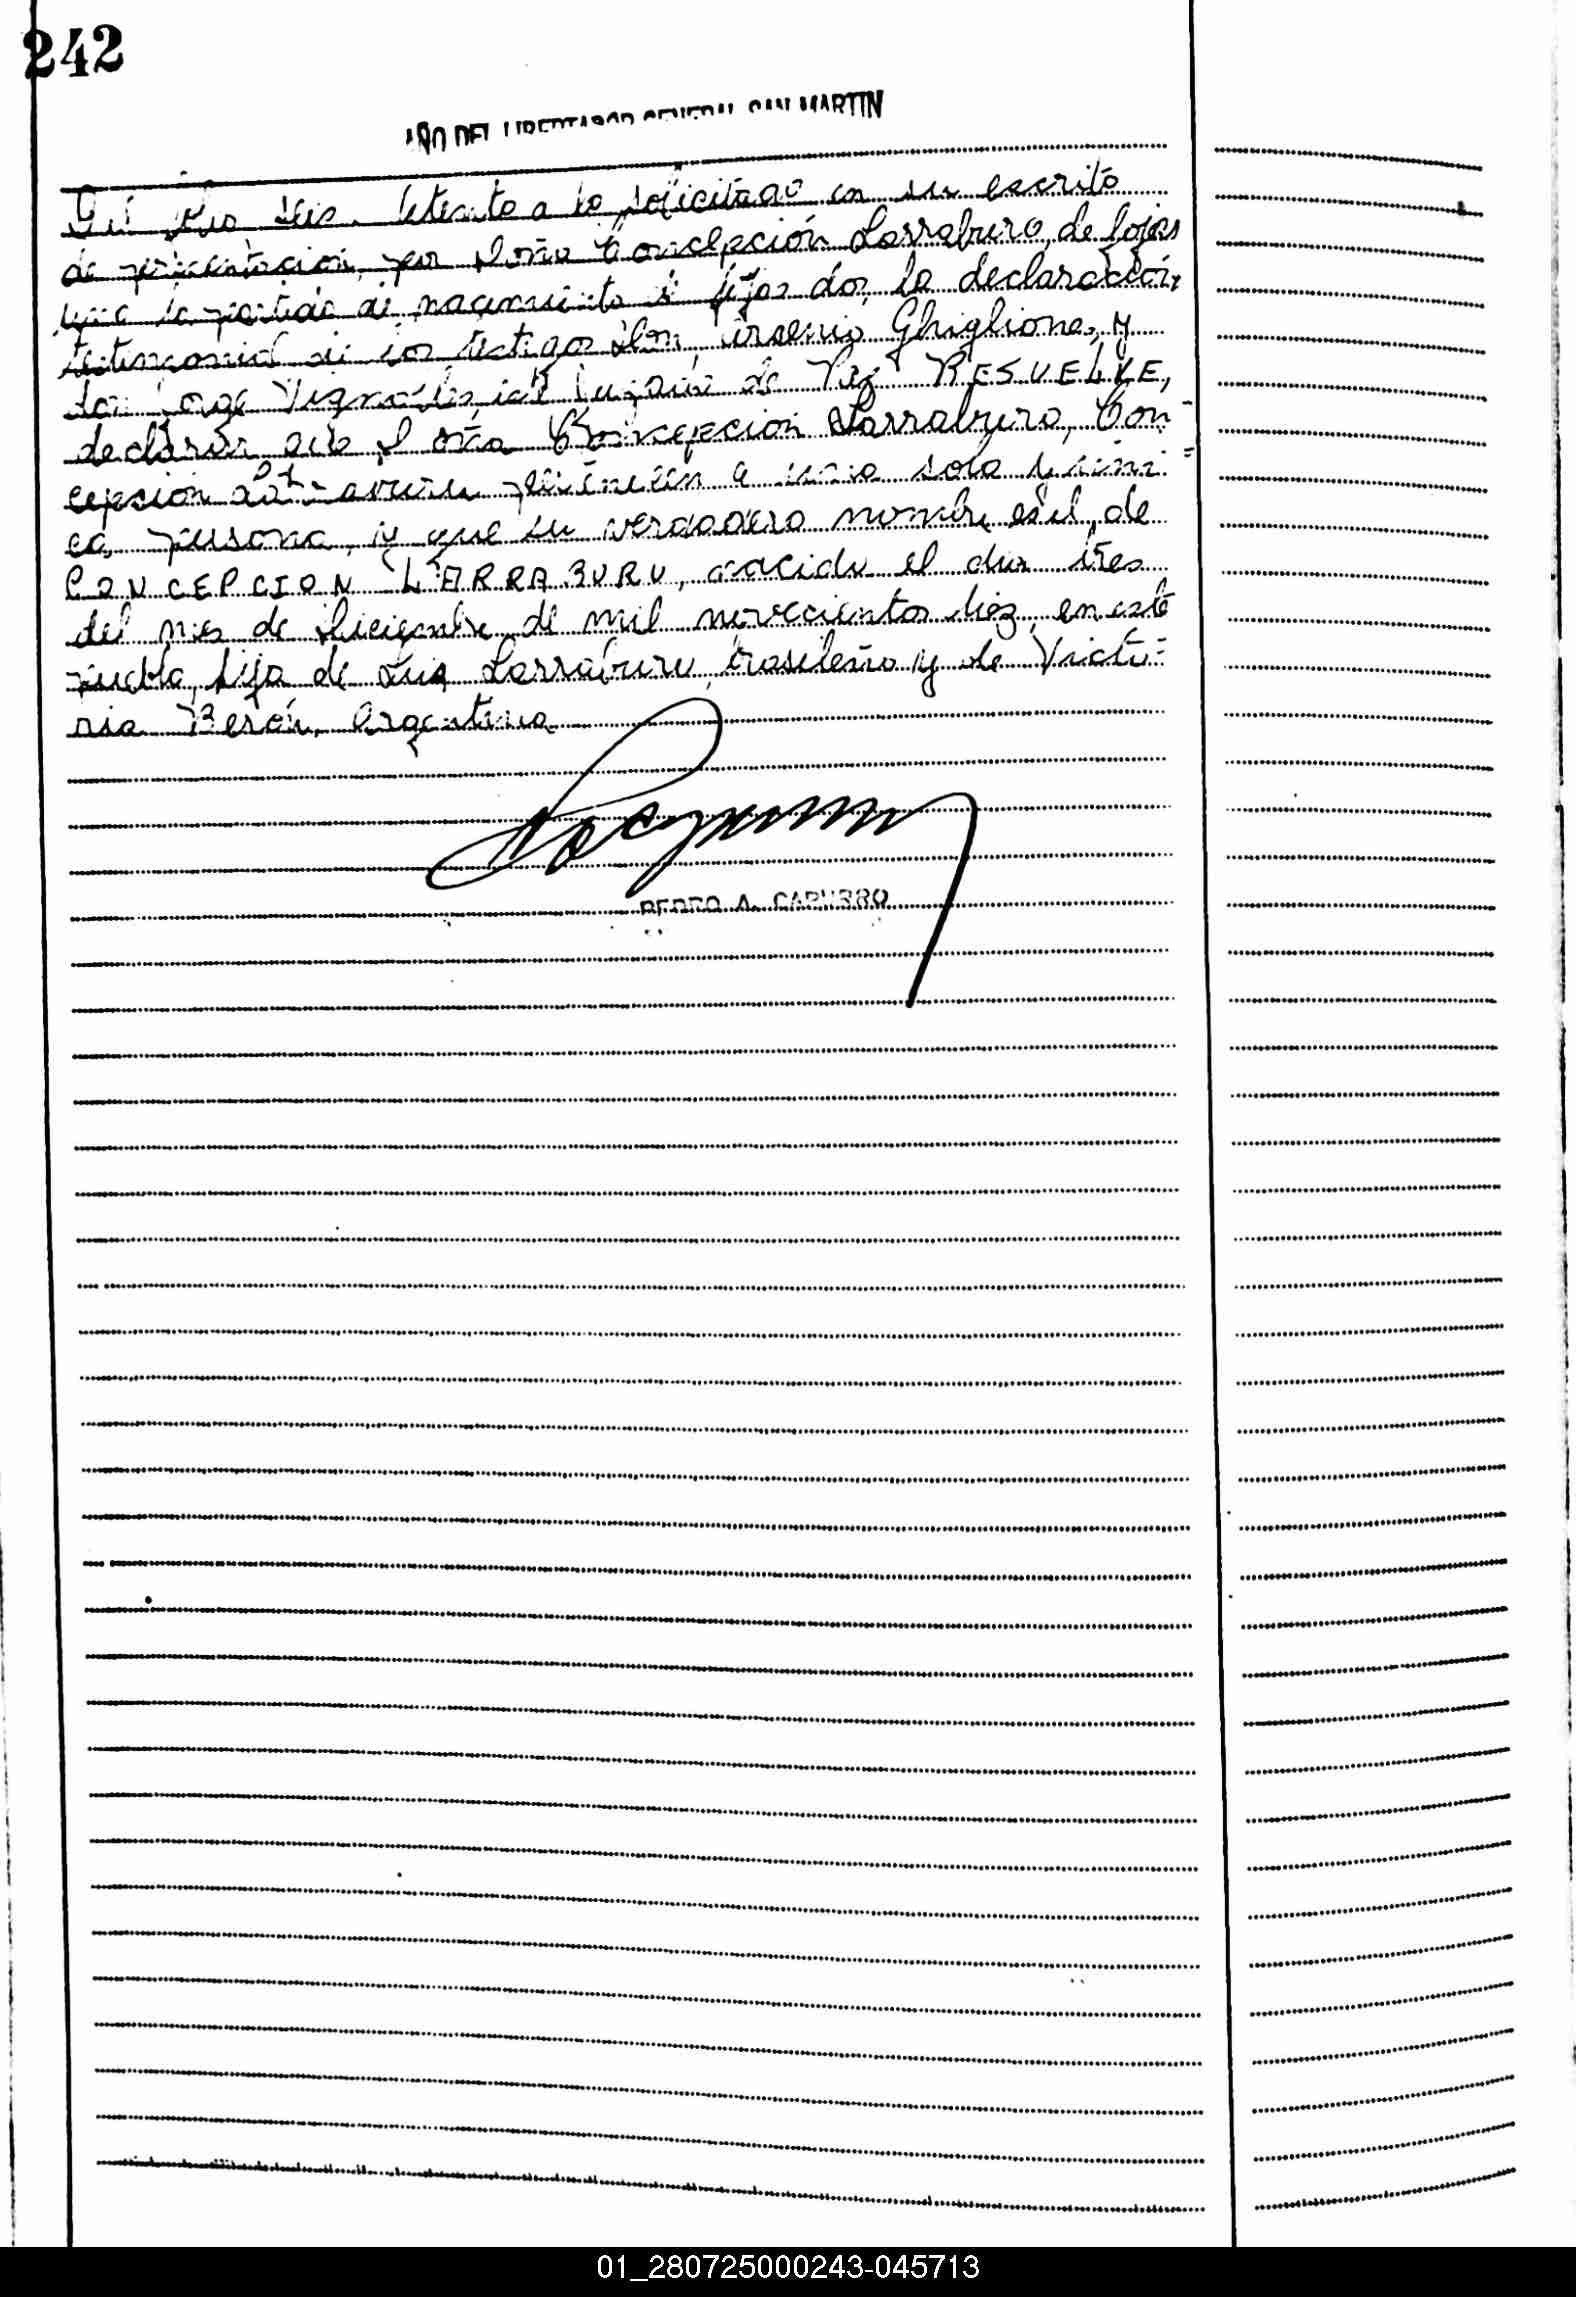 242
AÑO DEL LIBERTADOR GENERAL SAN MARTIN
seis. Atento a lo solicitado en su escrito
de presentación, por doña Concepción Larraburo, de fojas
una la partida de nacimiento de fojas dos, la declaración
testimonial de los testigos don, Arsenio Ghiglione, y
don Jorge Vignoles, el Juzgado de Paz RESUELVE,
declarar que doña Concepción Larraburo, Con-
cepción pertenecen a una sola y úni=
ca persona, y que su verdadero nombre es el de
CONCEPCION LARRABURU, nacida el dia tres
del mes de Diciembre de mil novecientos diez, en este
pueblo, hija de Luis Larraburu, brasileño y de Victo=
ria Berón, Argentina
PEDRO A. CAPURRO
01_280725000243-045713